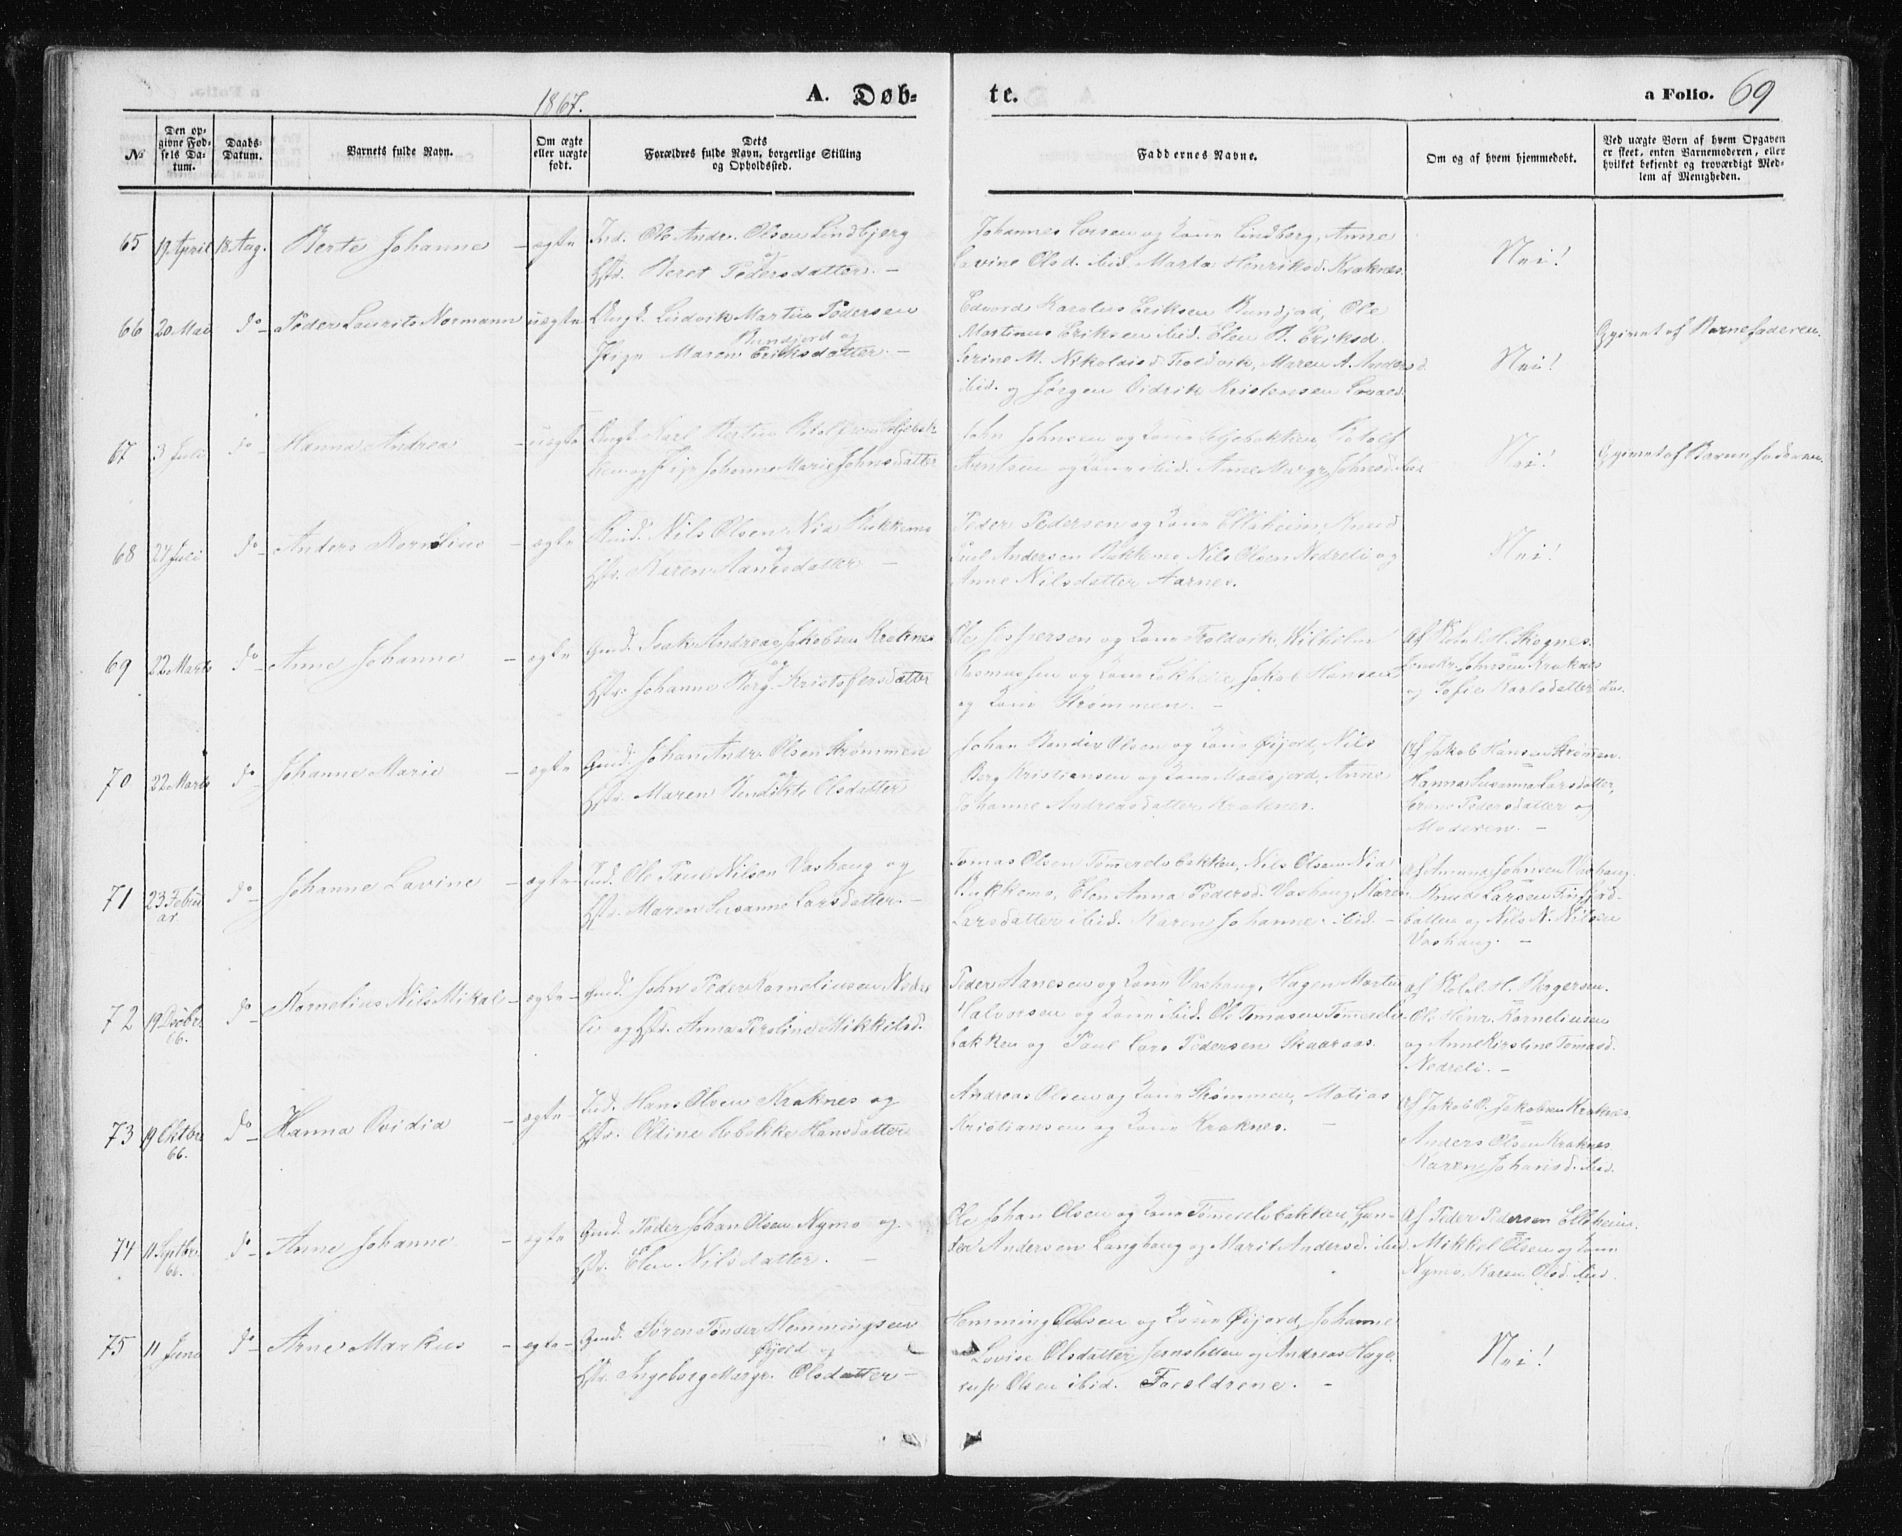 1867.
A. Døb-
te.
a Folio. 69
№
Den op-
givne Fød-
sels Da-
tum.
Daabs-
Datum.
Barnets fulde Navn.
Om ægte
eller uægte
født.
Dets
Forældres fulde Navn, borgerlige Stilling
og Opholdssted.
Faddernes Navne.
Om og af hvem hjemmedøbt.
Ved uægte Born af hvem Opgaven
er skeet, enten Barnemoderen, eller
hvilket bekjendt og troværdigt Med-
lem af Menigheden.
65 17 April 18. Aug. Berte Johanne - ægte
Ind. Ole Andr. Olsen Lindbjerg
og
Hst. Beret Pedersdatter. -
Johannes Larsen og Kone Lindberg, Anne
Lavine Olsd. ibid. Marta Henriksd. Kraknes.
Nei!
66 20 Mai do - Peder Laurits Normann uægte
Ungk. Ludvik Martin Pedersen
Bundjord og
Pige Maren Eriksdatter. -
Edvard Karolus Eriksen Bundjord, Ole
Martinus Eriksen ibid. Elen B. Eriksd.
Serine M. Nikolaisd. Troldvik, Maren A. Andersd.
ibid. og Jørgen Didrik Kristensen
Nei!
Opgivet af Barnefaderen.
67 3 Juli do Hanna Andrea - uægte
Ungk. Karl Bertin
og Pige Johanna Marie Johnsdatter
John Johnsen og Kone Seljebakken,
Arntsen og Kone ibid. Anne Margr. Johnsd. ibid
Nei!
Opgivet af Barnefaderen.
68 27 Juli do - Anders Kornelius - ægte
Nils Olsen Nia Bukkemo
og
Hst. Karen Aanesdatter -
Peder Pedersen og Kone Elleheim, Knud
Paul Andersen Bakkemo Nils Olsen Nedreli og
Anne Nilsdatter Aarnes.
Nei!
69 22 Marts do - Anne Johanne - ægte
Gmd. Isak Andreas Jakobsen Kraknes
og
Hst. Johanna Berg. Kristofersdatter
Ole Jespersen og Kone Troldvik, Wilhelm
Rasmussen og Kone Løkhelle, Jakob Hansen
og Kone Strømmen. -
af Skognes.
Johnsen Kraknes
og Sofie Karlsdatter ibid.
70 22 Marts do - Johanne Marie - ægte
Gmd. Johan Andr. Olsen Strømmen
og
Hst. Maren Bendikte Olsdatter
Johan Bendix Olsen og Kone Øijord, Nils
Berg Kristiansen og Kone Maalsjord, Anne
Johanne Andreasdatter Kraknes.
Af Jakob Hansen Strømmen.
Hanna Susanna Larsdatter,
Serine Pedersdatter og
Moderen. -
71 23 Febru
ar. do - Johanne Lavine - ægte -
Ind. Ole Paul Nilsen Vashaug og
Hst. Maren Susanna Larsdatter. -
Tomas Olsen Tømerelvbakken, Nils Olsen Nia
Bukkemo, Elen Anna Pedersd. Vashaug, Karen
Larsdatter ibid. Karen Johanne ibid. -
af Amund Johnsen Vashaug.
Knud Larsen
botten og Nils N. Nilsen
Vashaug. -
72 19 Dsebr.
66. do - Kornelius Nils Mikal - ægte -
Gmd. John Peder Korneliusen Nedre
li og Hst. Anna Peroline Mikkelsd.
Peder Aanesen og Kone Vashaug, Hagen Martin
Halvorsen og Kone ibid. Ole Tomasen Tømerelv-
bakken og Paul Lars Pedersen Skaaraas.
af H. Bergersen.
Ole Henr. Korneliusen
og Anne Kirstine Tomasd.
Nedreli. -
73 19 Oktbr.
66. do - Hanna Ovidia - ægte -
Ind. Hans Olsen Kraknes og
Hst. Oldine Rebekka Hansdatter
Andreas Olsen og Kone Strømmen, Matias
Kristiansen og Kone Kraknes. -
af Jakob P. Jakobsen Kraknes.
Anders Olsen Kraknes
Karen Johansd. ibid.
74 11 Septbr.
66. do - Anne Johanne - ægte
Gmd. Peder Johan Olsen Nymo og
Hst. Elen Nilsdatter. -
Ole Johan Olsen og Kone Tømerelvbakken, Gun-
der Andersen Langhaug og Marit Andersd. ibid.
Af Peder Pedersen Elleheim.
Mikkel Olsen og Kone
Nymo, Karen Olsd. ibid.
75 11 Juni do - Arne Markus - ægte -
Gmd. Søren Tønder Hemmingsen
Øijord og
Hst. Ingeborg Margr. Olsdatter -
Hemming Olsen og Kone Øijord, Johanne
Lovise Olsdatter og Andreas Hage-
rup Olsen ibid. Forældrene. -
Nei!